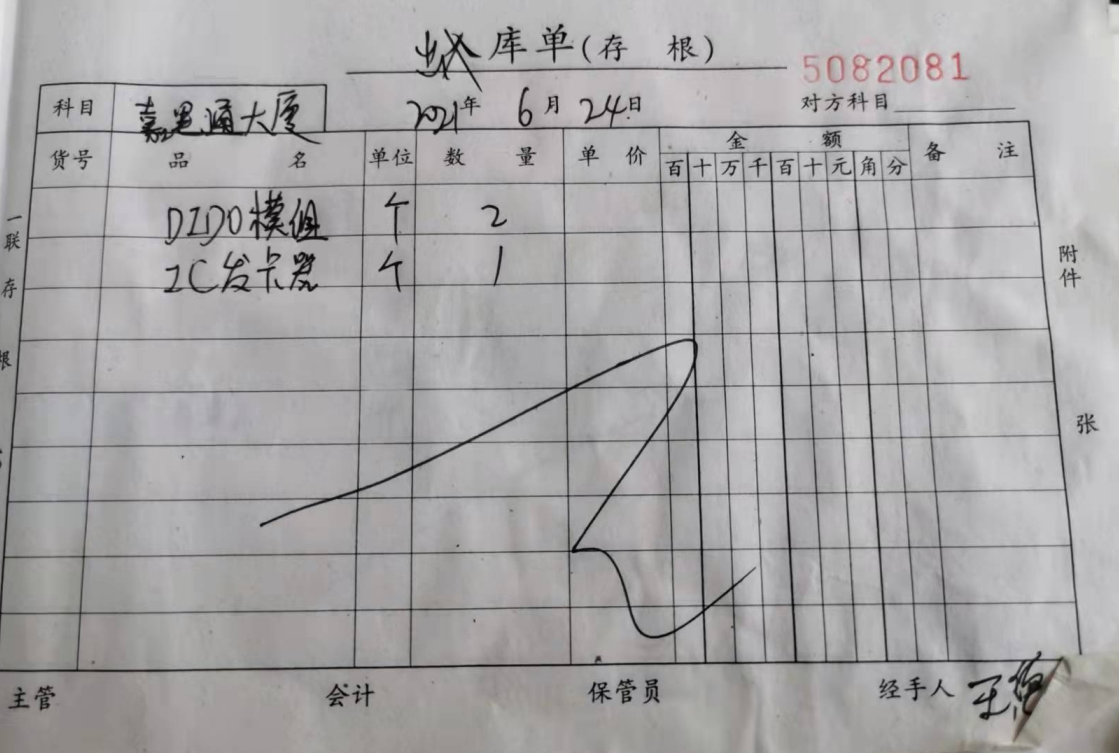 出库单(存 根)
5082081
科目 嘉里通大厦 2021年 6月 24日 对方科目
货号 品 名 单位 数 量 单 价 金 额 备 注
百 十 万 千 百 十 元 角 分
DIDO模组 个 2
IC发卡器 个 1
一联存根
附件
张
主管 会计 保管员 经手人 王